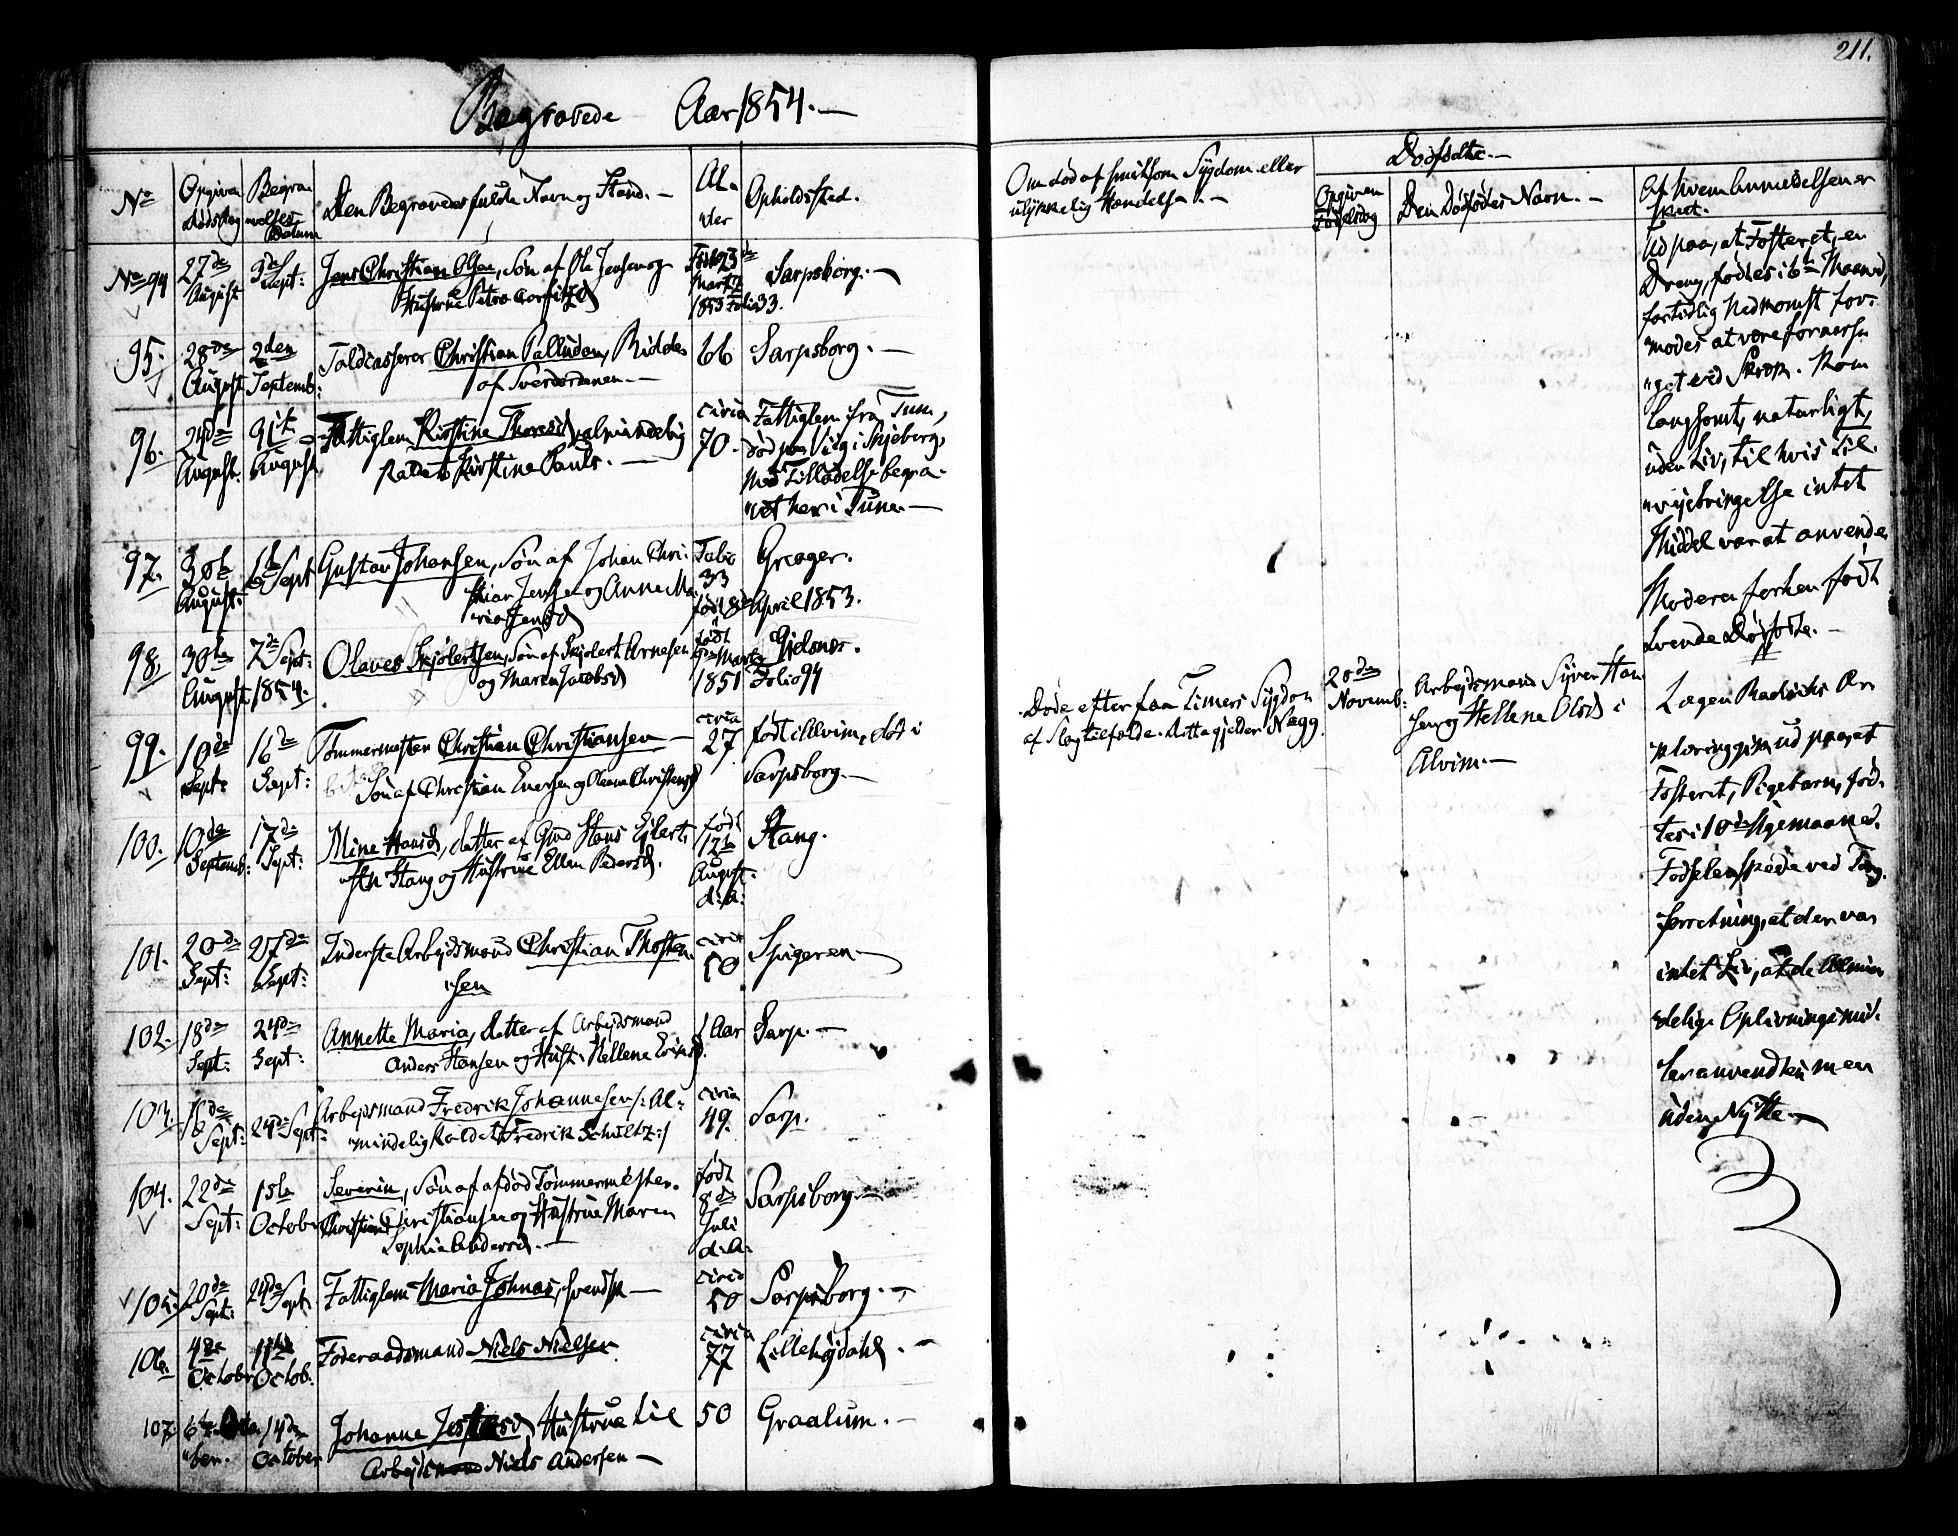 211.
Begravede Aar 1854.
No
Opgiven Dødsdag
Begravelses Datum
Den Begravedes fulde Navn og Stand.
Alder
Opholdssted.
No 94 27de August 3de Sept: Jens Christian Olsen, Søn af Ole Jensen og Sarpsborg.
Hustrue Petra
Født 23de Marts 1853 Folio 33.
95. 28de August 2den Septemb: Toldcasserer Christian Palludan, Ridder 66 Sarpsborg.
af Sverdordenen.
96. 24de August. August Fattiglem Kirstine Thoresd, almindelig circa 70.
kaldet Kirstine Pauls.
Fattiglem fra Tune,
død paa i Skjeberg,
med Tilladelse begra-
"vet her i Tune.
97. 30te August: Sept Gustav Johansen, Søn af Johan Chri- Folio 33 Greager.
stian Jensen og Anne Ma-
"ria Jensd
født 8de April 1853.
98. 30te August 7de Sept: 1854. Olaves Skjolertsen, Søn af Skjolert Arnesen
og Maren Jacobsd
født Marts 1851 Folio 94
99. 10de Sept: 16de Sept: Tømmermester Christian Christiansen circa 27 født i Alvim, død i
Søn af Christian Evensen og Oleane Christensd Sarpsborg.
100. 10de Septemb: 17de Sept: Mine Hansd, datter af Gmd Hans Ejlert- født 12te August d: A: Stang.
"sen Stang og Hustrue Ellen Pedersd.
101. 20de Sept: 27de Sept: Inderste Arbejdsmand Christian Thosten- circa 50 Spigeren
"sen
102. 18de Sept: 24de Sept: Annette Maria, datter af Arbejdsmand 1 Aar Sarp.
Anders Hansen og Hust: Hellene
103. 16de Sept: 24de Sept: Arbejdsmand Fredrik Johannesen /: Al- circa 49. Sarp.
"mindelig kaldet Fredrik Schultz :/
104. 22de Sept: 1ste October Severin, Søn af afdød Tømmermester født 8de Juli d: A: Sarpsborg.
Christian Christiansen og Hustrue Maren
Sophie Andersd.
105. 20de Sept: 24de Sept Fattiglem Maria Johnas, Svendsp. circa 50 Sarpsborg.
106. 4de October 11te Octob. Føderaadsmand Niels Nielsen circa 77
107. 6te "ber. 14de October Johanne Hustrue til 50 Graalum.
Arbejdsmand Niels Andersen
Om død af smitsom Sygdom eller
ulykkelig Hændelse.
Dødfødte.
Opgiven Fødselsdag
Den Dødfødtes Navn.
Af hvem Anmeldelsen er
skeet.
Døde efter faa Timers Sygdom
af Slagtilfælde. dette gjelder N 99.
20de Novemb: Arbejdsmand Syver Han-
sen og Hellene Olsd i
Alvim.
Ud paa, at Fosteret, en
Dreng, fødtes i 6te Maaned,
fortidlig Nedkomst for-
modes at være foraarsa-
"get ved Skræk. Kom
langsomt, naturligt,
uden Liv, til hvis Til-
"vejebringelse intet
Middel var at anvende.
Moderen forhen født
levende Dødfødte.
Lægen Radichs Er-
klæring gik ud paa, at
Fosteret, Pigebarn, fød-
tes i 10de Ugemaaned.
Fødselen skede ved Tang-
forretning, at der var
intet Liv, at de almin-
delige Oplivningsmid-
ler anvendtes men
uden Nytte.